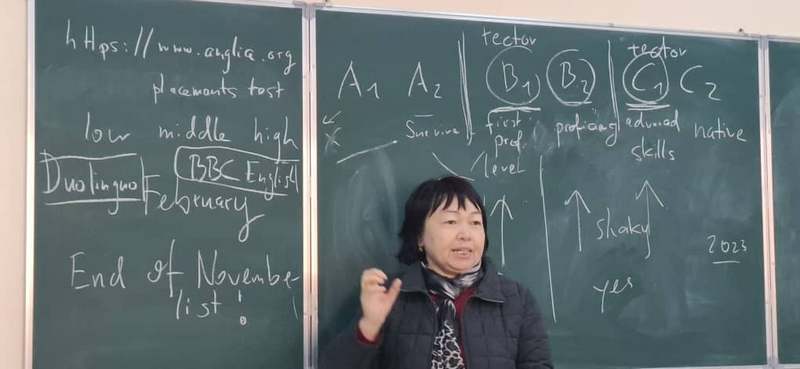 https://www.anglia.org
placements test
low middle high
Duolinguo BBC English
February
End of November
list!
tector tector
A1 A2 B1 B2 C1 C2
Survive first proficing advanced native
prof. skills
level
shaky
yes
2023